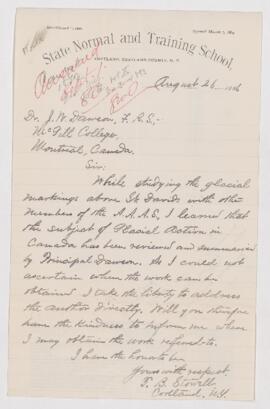 State Normal and Training School,
CORTLAND, CORTLAND COUNTY, N. Y.
Answered
August 26
Dr. J. W. Dawson, F.R.S.,
McGill College,
Montreal, Canada.
Sir:
While studying the glacial
markings above St Davids with other
members of the A.A.A.S., I learned that
the subject of Glacial Action in
Canada has been reviewed and summarized
by Principal Dawson. As I could not
ascertain where the work can be
obtained I take the liberty to address
the author directly. Will you therefore
have the kindness to inform me where
I may obtain the work referred to.
I have the honor to be
Yours with respect,
T. B. Stowell
Cortland, N.Y.